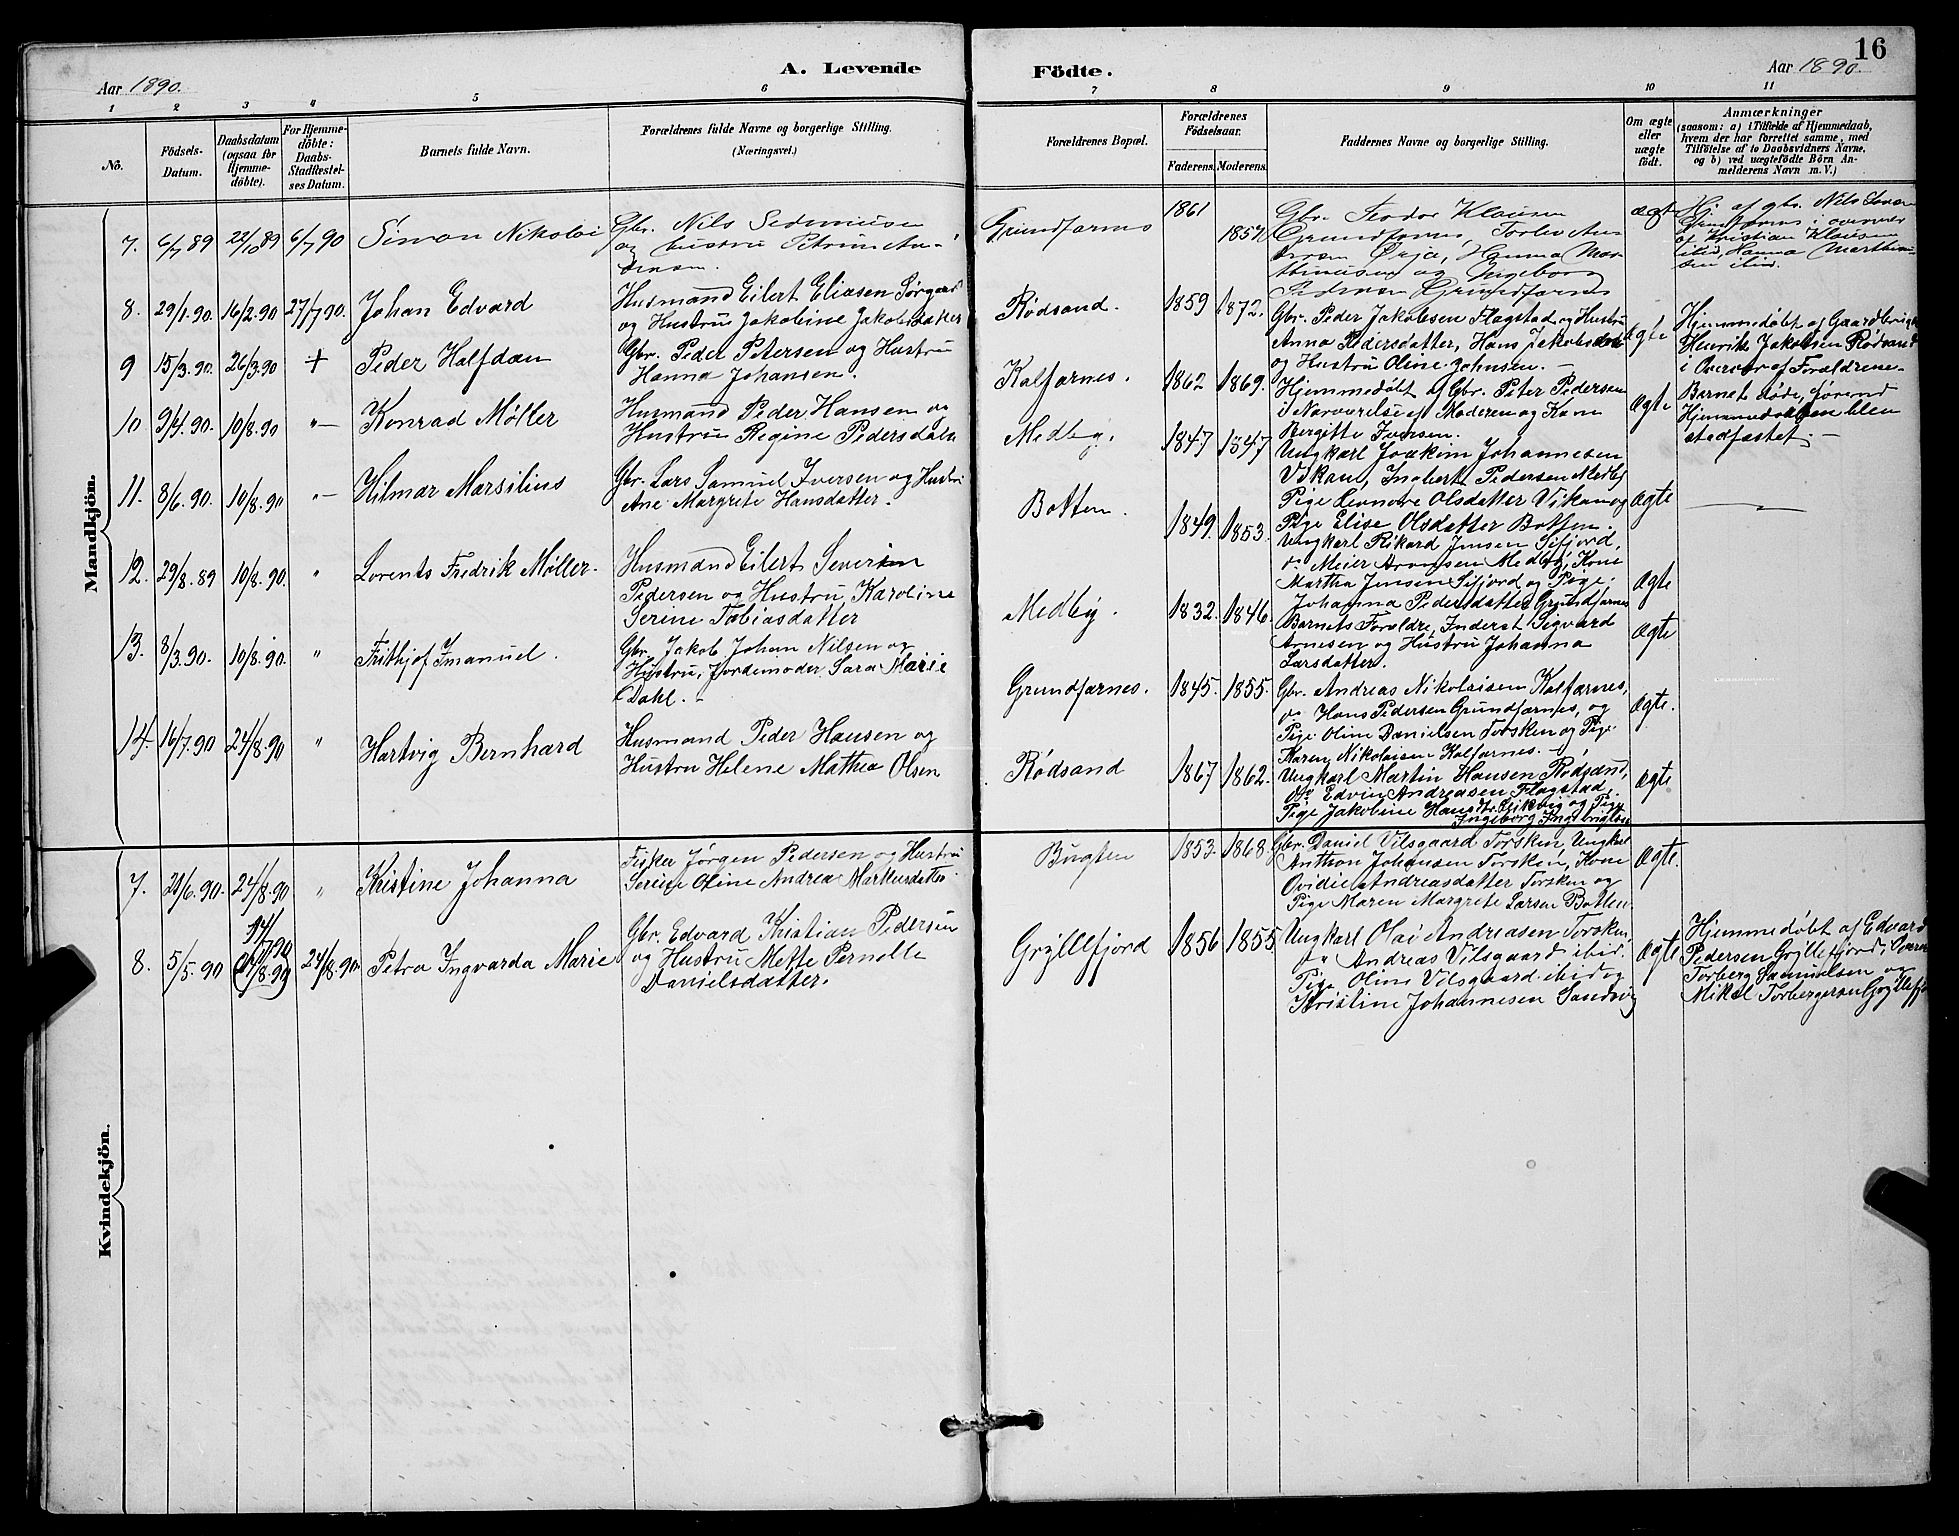 16
A. Levende Födte.
Aar 1890.
Aar 1890.
1 2 3 4 5 6 7 8 9 10 11
No.
Födsels-Datum.
Daabsdatum (ogsaa for Hjemme-döbte).
For Hjemme-döbte: Daabs-Stadfæstel-ses Datum.
Barnets fulde Navn.
Forældrenes fulde Navne og borgerlige Stilling.
(Næringsvei.)
Forældrenes Bopæl.
Forældrenes Födselsaar.
Faderens. Moderens.
Faddernes Navne og borgerlige Stilling.
Om ægte eller uægte födt.
Anmærkninger
(saasom: a) i Tilfælde af Hjemmedaab,
hvem der har forrettet samme, med
Tilföielse af to Daabsvidners Navne,
og b) ved uægtefödte Börn An-
melderens Navn m. V.)
Mandkjön.
7. 6/7 89 22/10 89 6/7 90 Simon Nikolai
Gbr. Nils
og Hustru
Grundfarnes
1861
1857
Gbr. Teodor Klausen
Grundfarnes, Torlev An-
Hanna Mar-
og Ingeborg
Grundfarnes
ægte
Hj. af gbr. Nils
Grundfarnes i overvær
af Kristian Klausen
ibid, Hanna
ibid.
8. 29/1.90. 16/2.90 27/7 90. Johan Edvard
Husmand Eilert Eliasen Sørgaard
og Hustru Jakobine Jakobsdatter
Rødsand.
1859 1872.
Gbr. Peder Jakobsen Flagstad og Hustru
Anna Pedersdatter, Hans Jakobsen
og Hustru Oline Johnsen. –
Ægte
Hjemmedøbt af Gaardbruger
Henrik Jakobsen Rødsand
i Overvær af Forældrene –
9 15/3.90. 26/3.90 + Peder Halfdan
Gbr. Peder Petersen og Hustru
Hanna Johansen.
Kalfarnes.
1862 1869.
Hjemmedøbt af Gbr. Peter Pedersen
i Nærværelse af Moderen og Kone
Bergitte Iversen.
Ægte
Barnet døde, førend
Hjemmedaaben blev
stadfæstet. –
10 9/4.90. 10/8.90 "– Konrad Møller
Husmand Peder Hansen og
Hustru Regine Pedersdatter
Medby.
1847 1847
Ungkarl Joakim Johannesen
Vikan, Ingbert Pedersen Medby
Pige Leonore Olsdatter Vikan og
Pige Elise Olsdatter Botten.
Ægte
11. 8/6.90. 10/8.90 "– Hilmar Marsilius
Gbr. Lars Samuel Iversen og Hustru
Ane Margrete Hansdatter.
Botten.
1849. 1853.
Ungkarl Rikard Jensen Sifjord,
Meier Aronsen Medby, Kone
Martha Jensen Sifjord og Pige
Johanna Pedersdatter Grundfarnes
Ægte
12. 29/8.89 10/8.90. " Lorents Fredrik Møller.
Husmand Eilert Severin
Pedersen og Hustru Karoline
Serine Tobiasdatter
Medby.
1832. 1846.
Barnets Forældre, Inderst Sigvard
Arnesen og Hustru Johanna
Larsdatter.
Ægte
13. 8/3.90. 10/8.90. " Frithjof Imanuel.
Gbr. Jakob Johan Nilsen og
Hustru, Jordemoder Sara Marie
Dahl. –
Grundfarnes.
1845. 1855.
Gbr. Andreas Nikolaisen Kalfarnes,
Hans Pedersen Grundfarnes, og
Pige Oline Danielsen Torsken og Pige
Karen Nikolaisen Kalfarnes. –
Ægte.
14. 16/7.90 24/8.90 " Hartvig Bernhard
Husmand Peder Hansen og
Hustru Helene Mathea Olsen
Rødsand
1867 1862.
Ungkarl Martin Hansen Rødsand,
Edvin Andreasen Flagstad,
Pige Jakobine Hansdtr. og Pige
Ingeborg
Ægte
Kvindekjön.
7. 21/6.90. 24/8.90 " Kristine Johanna
Fisker Jørgen Pedersen og Hustru
Serine Oline Andrea Markusdatter.
Bugten
1853. 1868.
Gbr. Daniel Vilsgaard Torsken, Ungkarl
Anthon Johansen Torsken, Kone
Ovidie Andreasdatter Torsken og
Pige Maren Margrete Larsen Botten.
Ægte.
8. 5/5.90 24/8.90. Petra Ingvarda Marie
Gbr. Edvard Kristian Pedersen
og Hustru Mette Pernelle
Danielsdatter.
Gryllefjord
1856 1855
Ungkarl Olai Andreasen Torsken,
" Andreas Vilsgaard ibid.
Pige Oline Vilsgaard ibid og
Kristine Johannesen Sandvig
Ægte
Hjemmedøbt af Edvard
Pedersen Gryllefjord, Overv.
Torberg Samuelsen og
Mikal Torbergsen Gryllefj.